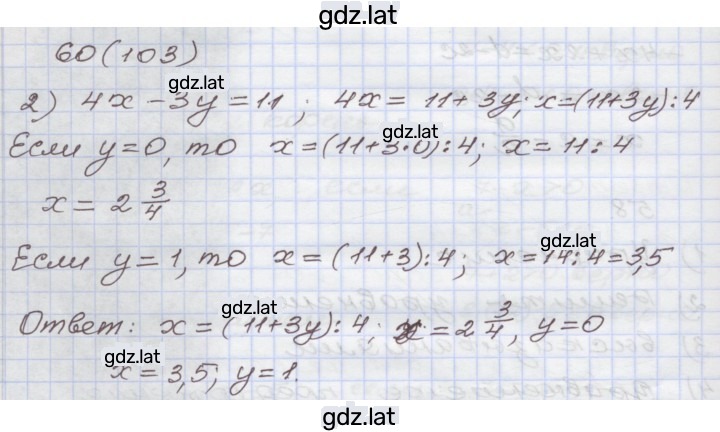 gdz.lat
60(103)
gdz.lat
2) 4x - 3y = 11; 4x = 11 + 3y; x = (11+3y):4
gdz.lat
Если y=0, то x=(11+3·0):4; x = 11:4
x = 2 3/4
gdz.lat
Если y=1, то x=(11+3):4; x=14:4=3,5
gdz.lat
Ответ: x=(11+3y):4; x=2 3/4, y=0
gdz.lat
x=3,5; y=1.
gdz.lat